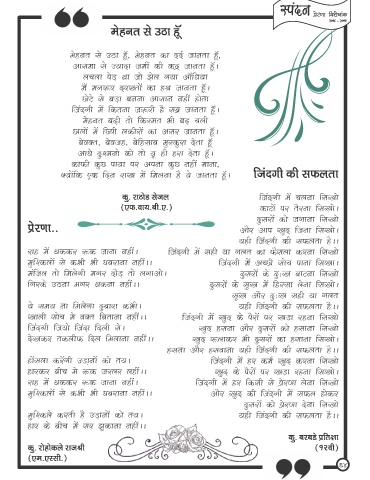 स्पंदन
प्रेरणा
मेहनत से उठा हूँ
मेहनत से उठा हूँ, मेहनत का दर्द जानता हूँ,
आसमा से ज्यादा जमीं की कद्र जानता हूँ।
लचीला पेड था जो झेल गया आँधिया
में मगरूर दरख्तों का हश्र जानता हूँ।
छोटे से बडा बनना आसान नहीं होता
जिंदगी में कितना जरुरी है सब्र जानता हूँ।
मेहनत बढी तो किस्मत भी बढ चली
छालों में छिपी लकीरों का असर जानता हूँ।
बेवक्त, बेवजह, बेहिसाब मुस्कुरा देता हूँ
आधे दुश्मनो को तो यूं ही हरा देता हूँ।
काफी कुछ पाया पर अपना कुछ नहीं माना,
क्योंकि एक दिन राख में मिलना है ये जानता हूँ।
कु. राठोड सेजल
(एफ.वाय.बी.ए.)
प्रेरणा..
राह में थककर रूक जाना नहीं।
मुश्किलों से कभी भी घबराना नहीं।।
मंजिल तो मिलेगी मगर दौड़ तो लगाओ।
गिरके उठना मगर थकना नहीं।।
ये समय ना मिलेगा दुबारा कभी।
खाली सोच में वक्त बिताना नहीं।।
जिंदगी जियो जिंदा दिली से।
देखकर तकलीफ दिल मिलाना नहीं।।
हौंसला करेगी उड़ानों को तय।
हारकर बीच में रूक जाना नहीं।।
राह में थककर रूक जाना नहीं।
मुश्किलों से कभी भी घबराना नहीं।।
मुश्किले करती है उड़ानों को तय।
हार के बीच में सर झुकाना नहीं।।
कु. रोहोकले राजश्री
(एम.एससी.)
जिंदगी की सफलता
जिंदगी में चलना सिखो
काटों पर तैरना सिखो।
दुसरों को जगाना सिखो
और आप खुद जिना सिखो।
यही जिंदगी की सफलता है।।
जिंदगी में सही या गलत का फैसला करना सिखो
जिंदगी में अच्छी सोच पाना सिखो।
दुसरों के दुःख बाटना सिखो
दुसरों के सुख में हिस्सा लेना सिखो।
सुख और दुःख सही या गलत
यही जिंदगी की सफलता है।।
जिंदगी में खुद के पैरों पर खडा रहना सिखो
खुद हसना और दुसरों को हसाना सिखो
खुद रूलाकर भी दुसरों का हसाना सिखो।
हसना और हसवाना यही जिंदगी की सफलता है।।
जिंदगी में हर कर्म खुद करना सिखो
खुद के पैरों पर खडा रहना सिखो।
जिंदगी में हर किसी से प्रेरणा लेना सिखो
और खुद की जिंदगी में सफल होकर
दुसरों को प्रेरणा देना सिखो
यही जिंदगी की सफलता है।।
कु. बरबडे प्रतिक्षा
(१२वी)